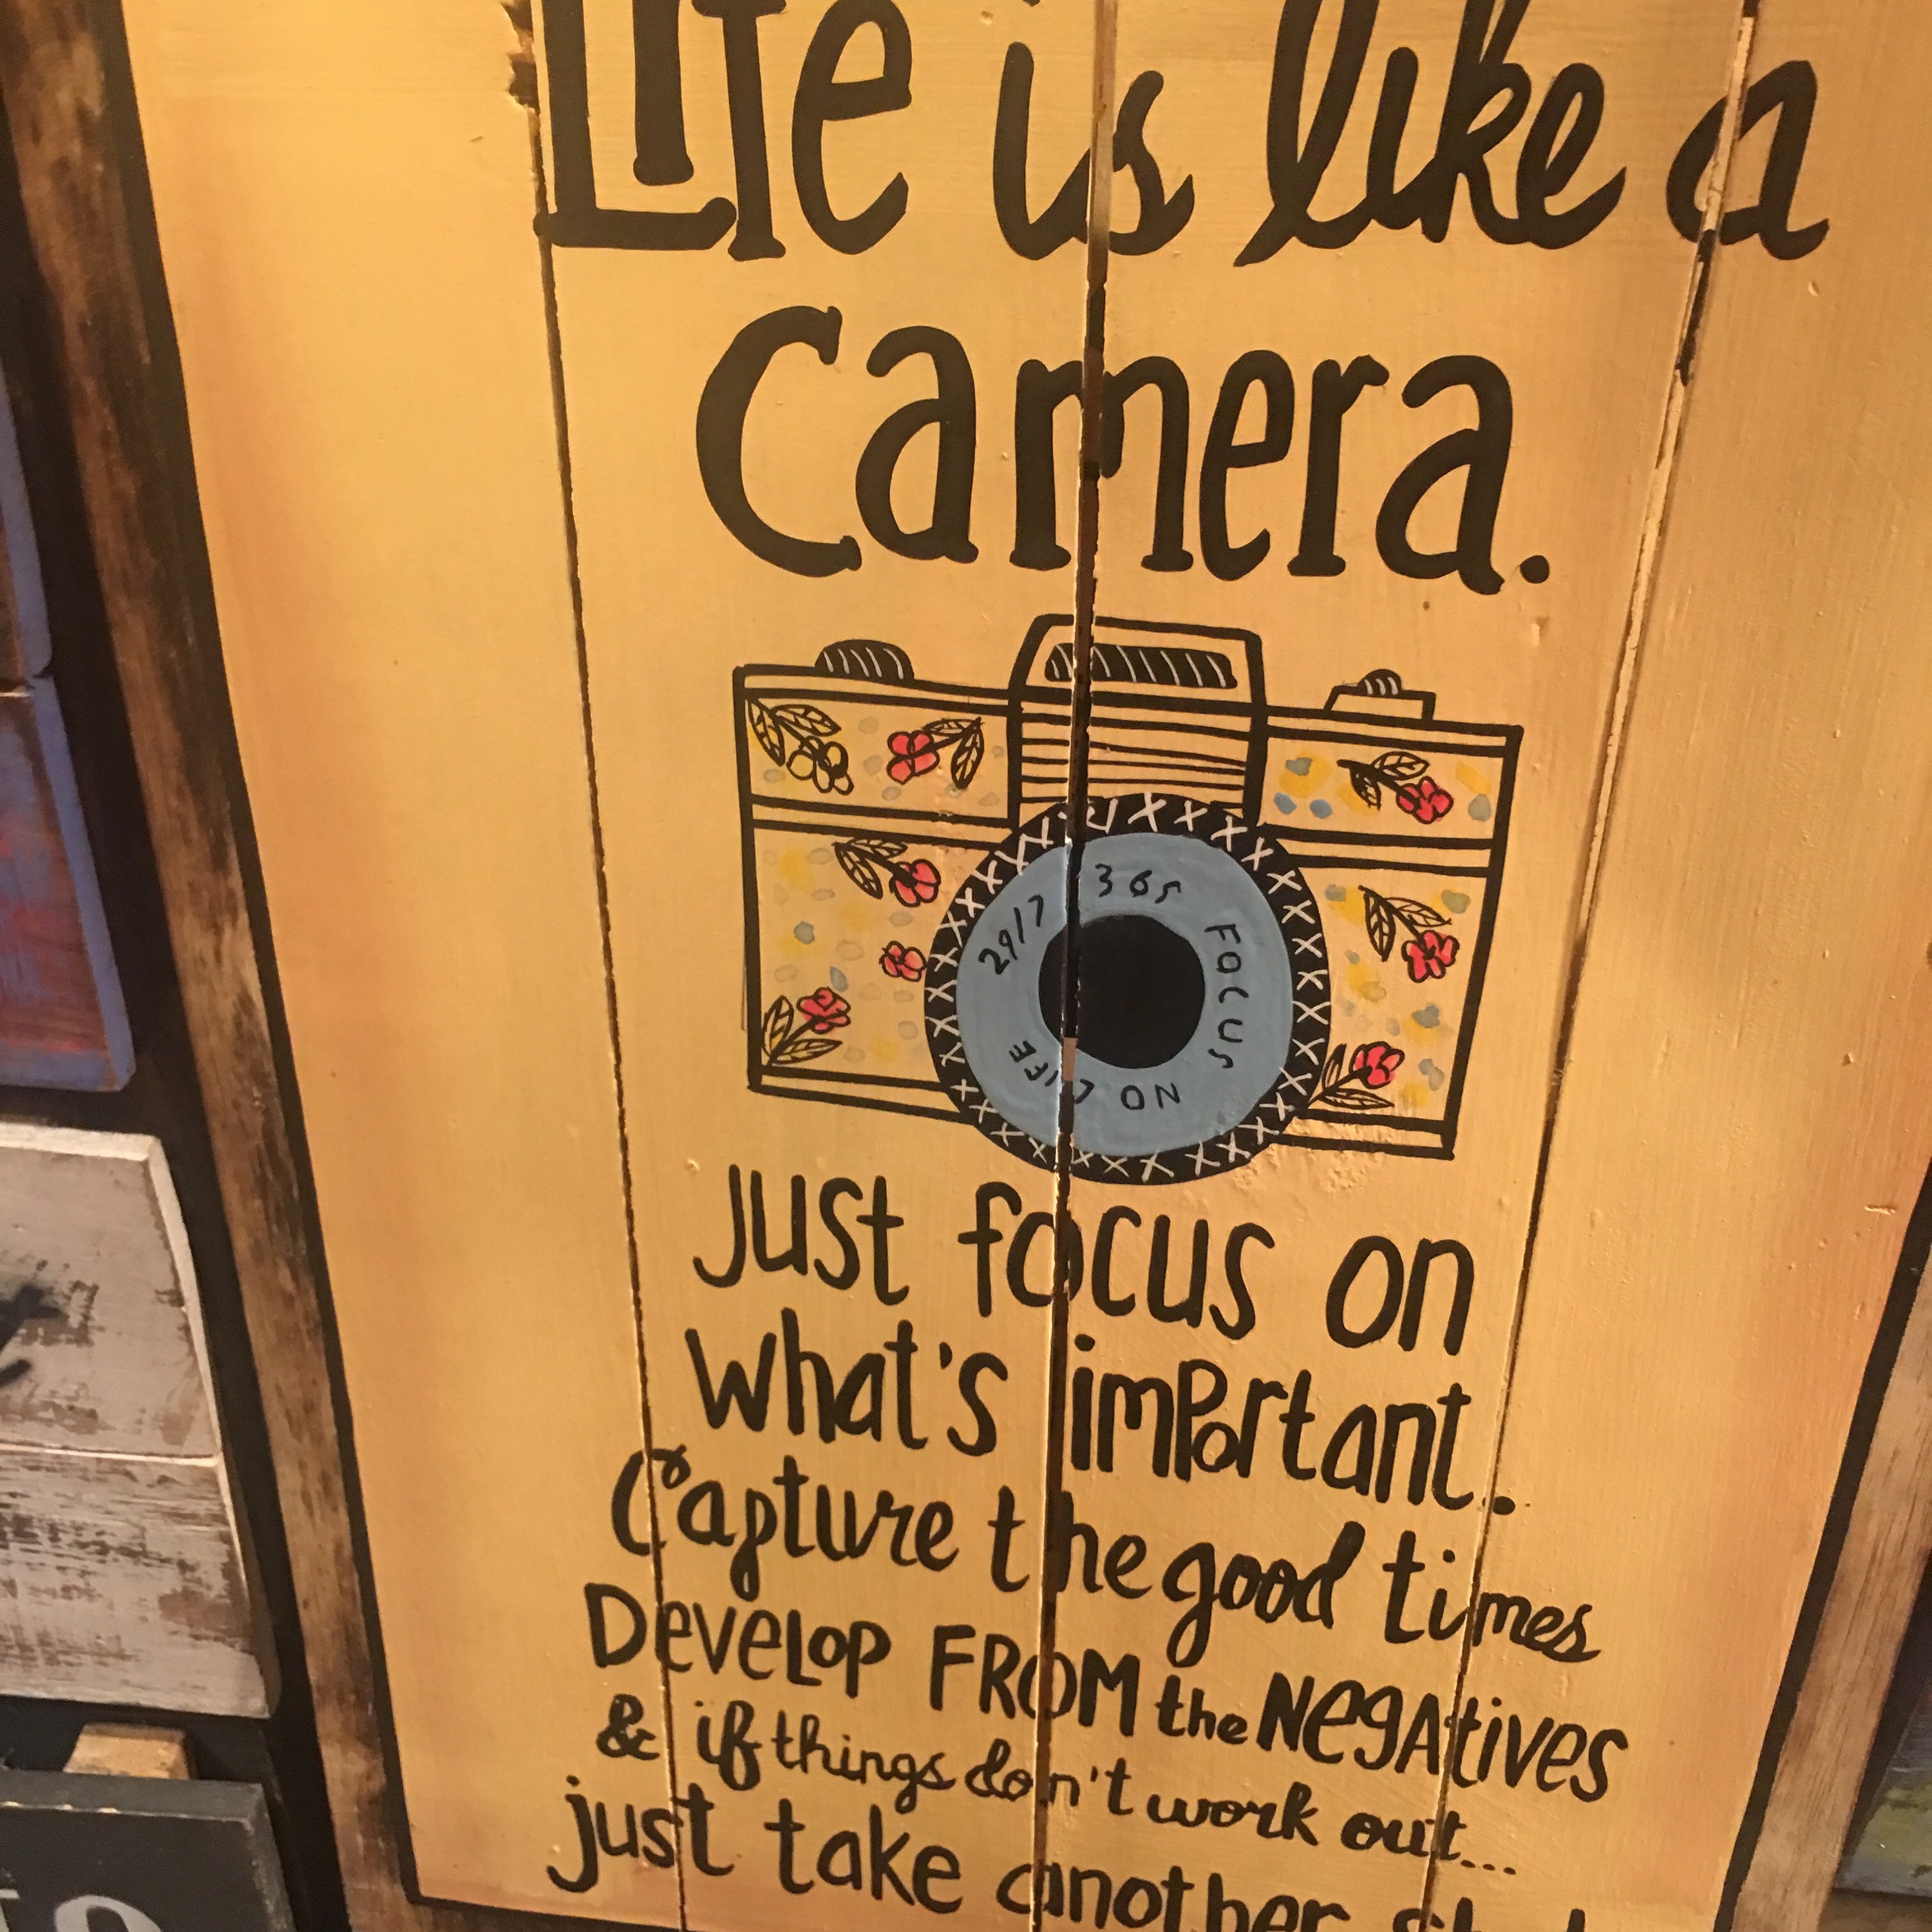 Life is like a
Camera.
29/7 365 FOCUS NO LIFE
just focus on
what's important.
Capture the good times
Develop FROM the Negatives
& if things don't work out...
just take another